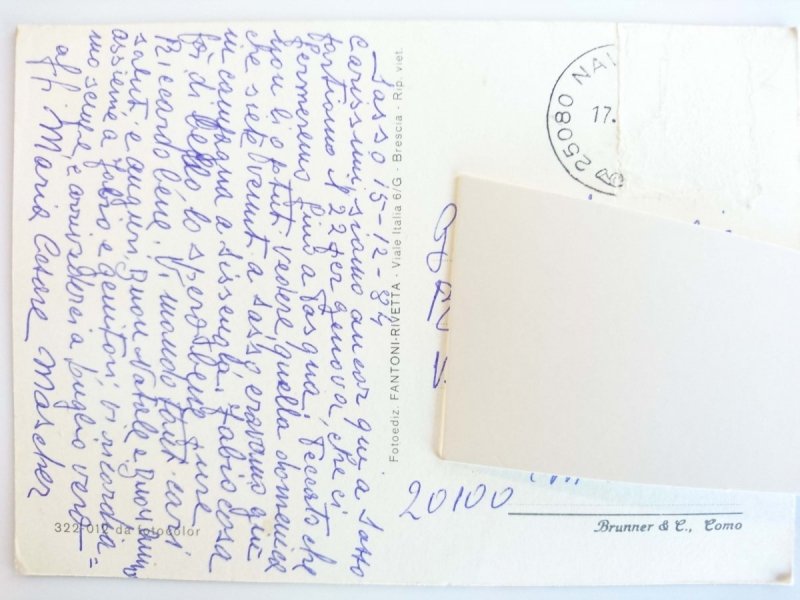 Sasso 15-12-84
Carissimi siamo ancor qui a Sasso
partiamo il 22 per genova, che ci
fermeremo fino a Pasqua, Peccato che
non vi o potut vedere quella domenica
che siete venut a Sasso eravamo giù
in campagna a Fabio cosa
fà di bello lo spero bene, pure
Riccardo bene. Vi mando tant cari
salut e auguri, Buon Natale e Buon Anno
assieme a Fabio e genitori vi ricordia=
mo sempre e arrivederci a luglio verò
aff. Maria Cesare Mascher
322-012 da fotocolor
Fotoediz. FANTONI-RIVETTA - Viale Italia 6/G - Brescia - Rip. viet.
25080 NA
17.
20100
Brunner & C., Como